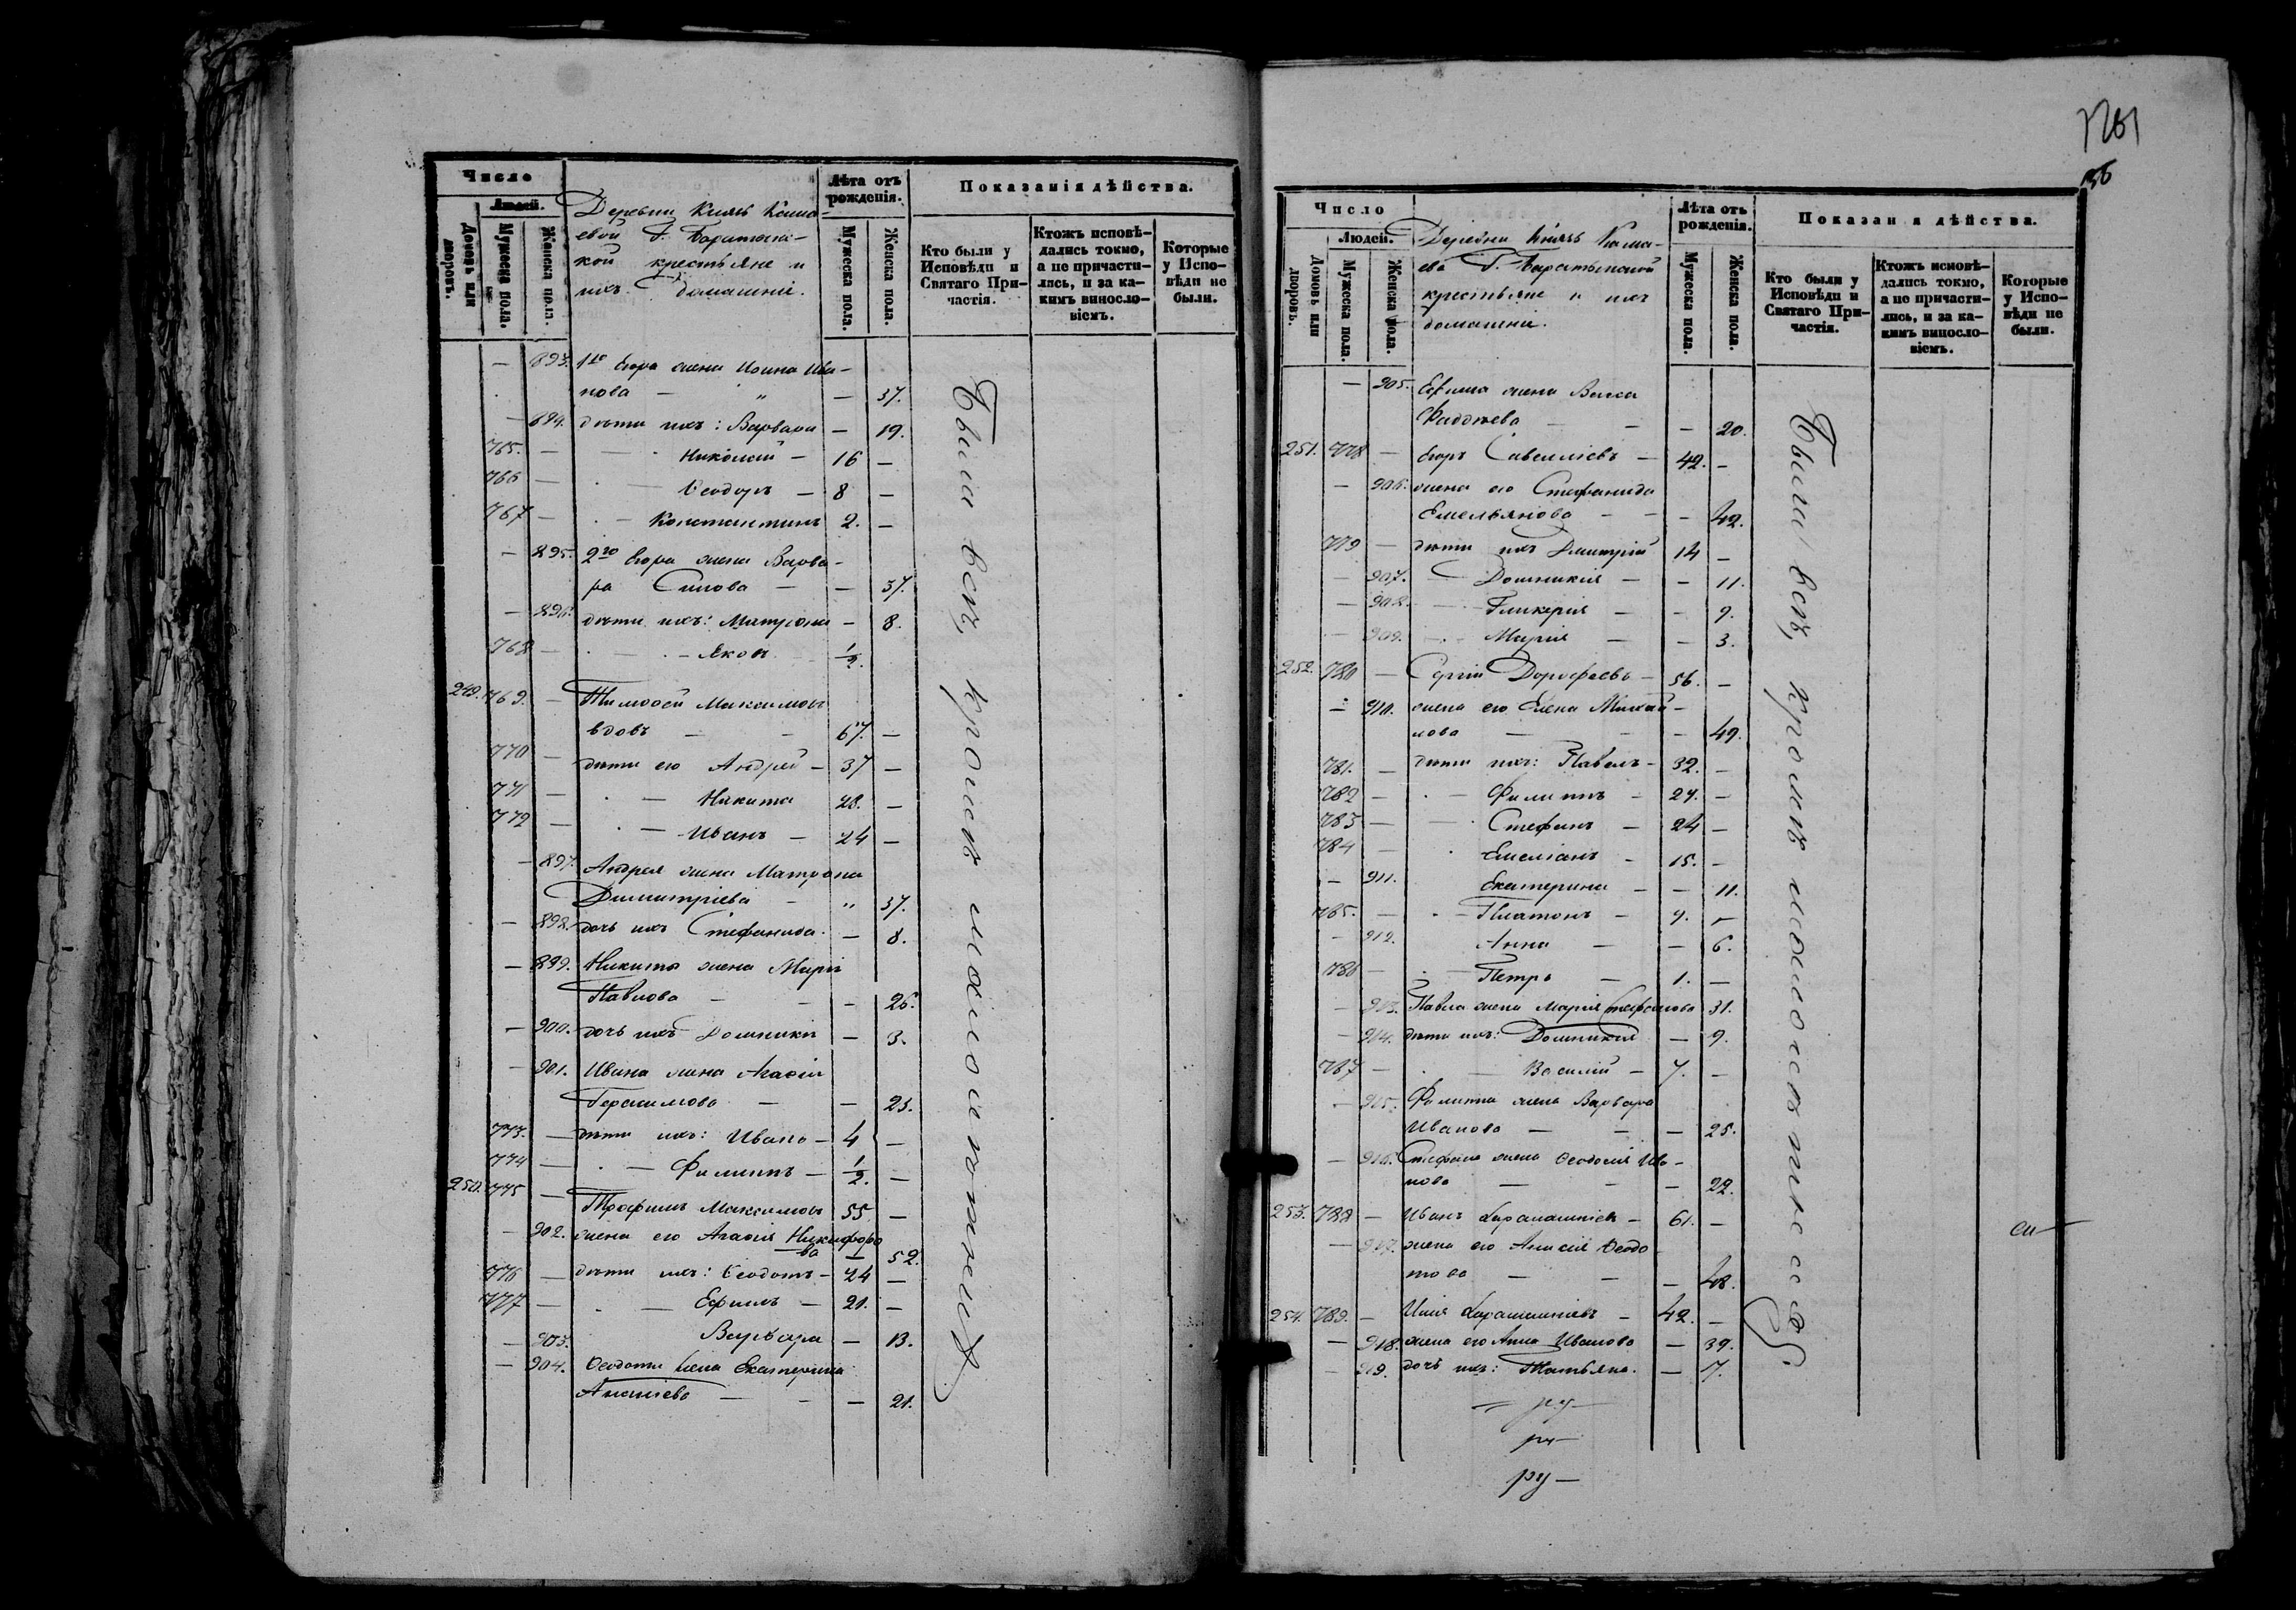 Число
Людей.
Домовъ или дворовъ.
Мужеска пола.
Женска пола.
Деревни Князь Кама-
евой Г. Баратынс-
кой крестьяне и
ихъ домашніи.
Лѣта отъ рожденія.
Мужеска пола.
Женска пола.
Показанія дѣйства.
Кто были у Исповѣди и Святаго При-частія.
Ктожъ исповѣ-дались токмо, а не причасти-лись, и за ка-кимъ винословіемъ.
Которые у Испо-вѣди не были.
— 893. 1го Егора жена Ирина Ива-
нова — „ — 37.
— 894. дѣти ихъ: Варвара — 19.
765. — Николай — 16 —
766 — Ѳеодоръ — 8 —
767 — Константинъ 2. —
— 895. 2го Егора жена Варва-
ра Силова — — 37.
— 896. дѣти ихъ: Матрона — 8.
768 — Яковъ ½.
249. 769. — Тимоѳей Максимовъ
вдовъ — 67. —
770 — дѣти его Андрей — 37 —
771 — Никита 28. —
772 — Иванъ — 24 —
— 897. Андрея жена Матрона
Димитріева — „ 37.
— 898. дочь ихъ Стефанида — 8.
— 899. Никиты жена Марія
Павлова — — 26.
— 900. дочь ихъ Домникія — 3.
— 901. Ивана жена Агаѳія
Герасимова — — 23.
773. — дѣти ихъ: Иванъ — 4 —
774 — Филиппъ — ½. —
250. 775 — Трофимъ Максимовъ 55 —
— 902. жена его Агаѳія Никифоро
ва — 52.
776 — дѣти ихъ: Ѳеодотъ — 24 —
777 — Ефимъ — 21. —
— 903. Варвара — 13.
— 904. Ѳеодота жена Екатерина
Ананіева — — 21.
Были всѣ, кромѣ малолѣтнихъ
136
Число
Людей.
Домовъ или дворовъ.
Мужеска пола.
Женска пола.
Деревни Князь Кама-
ева Г. Баратынской
крестьяне и ихъ
домашніи.
Лѣта отъ рожденія.
Мужеска пола.
Женска пола.
Показан я дѣйства.
Кто были у Исповѣди и Святаго При-частія.
Ктожъ исповѣ-дались токмо, а не причасти-лись, и за ка-кимъ винословіемъ.
Которые у Испо-вѣди не были.
— 905. Ефима жена Васса
Фаддѣева — — 20.
251. 778 — Егоръ Савеліевъ — 42. —
— 906. жена его Стефанида
Емельянова — — 42.
779 — дѣти ихъ Димитрій 14 —
— 907. Домникія — — 11.
— 908. Гликерія — — 9.
— 909. Марія — — 3.
252. 780 — Сергій Дорофеевъ — 56. —
— 910. жена его Елена Михай-
лова — — 49.
781. — дѣти ихъ: Павелъ — 32. —
782 — Филиппъ — 27. —
783 — Стефанъ — 24 —
784 — Емеліанъ — 15. —
— 911. Екатерина — — 11.
785. — Платонъ — 9. —
— 912. Анна — — 6.
786 — Петръ — 1. —
— 913. Павла жена Марія Стефанова 31.
— 914. дѣти ихъ: Домникія — 9.
787 — Василій — 7. —
— 915. Филиппа жена Варвара
Иванова — — 25.
— 916. Стефана жена Ѳеодосія Ива-
нова — — 22.
253. 788 — Иванъ Харлампіевъ — 61. —
— 917. жена его Анисія Ѳеодо
това — — 48.
254. 789. — Илія Харлампіевъ — 42. —
— 918. жена его Анна Иванова — 39.
— 919. дочь ихъ: Татьяна. — 7.
Были всѣ, кромѣ малолѣтнихъ